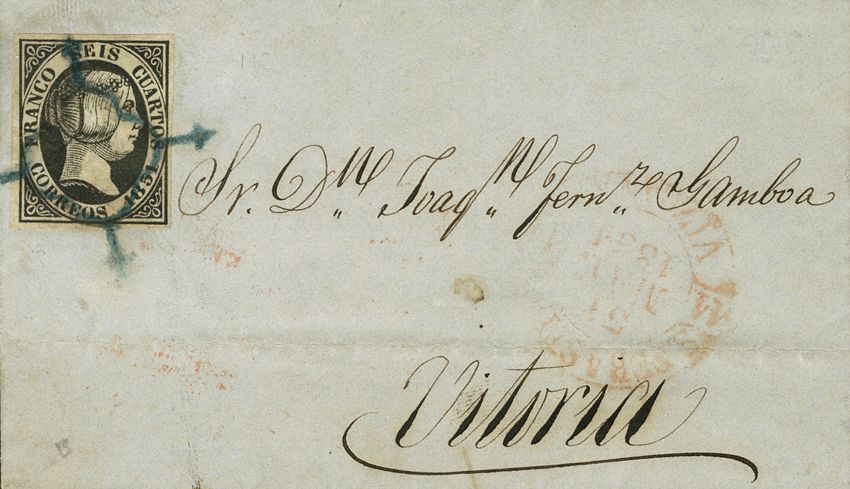 FRANCO SEIS CUARTOS
CORREOS 1851
Sr. Dn. Joaqn. Fernz. Gamboa
Vitoria